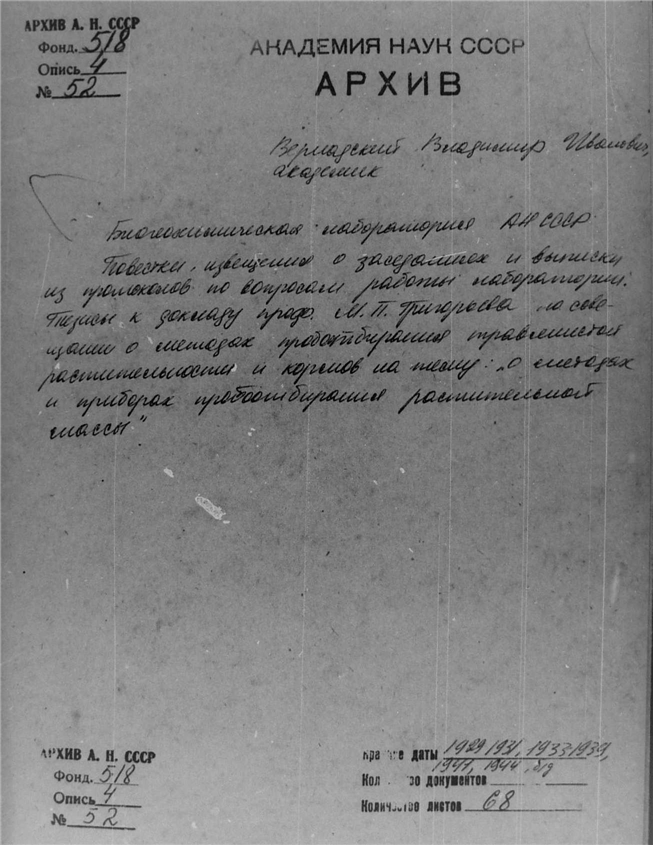 АРХИВ А. Н. СССР
Фонд. 518
Опись 4
№ 52
АКАДЕМИЯ НАУК СССР
АРХИВ
Вернадский Владимир Иванович,
академик
Биогеохимическая лаборатория АН СССР.
Повестки, извещения о заседаниях и выписки
из протоколов по вопросам работы лаборатории.
Тезисы к докладу проф. М. П. Григорьева по сове-
щании о методах пробоотбирания травянистой
растительности и кормов на тему: "о методах
и приборах пробоотбирания растительной
массы"
АРХИВ А. Н. СССР
Фонд. 518
Опись 4
№ 52
даты 1929 1931, 1933-1939,
1941, 1944, б/д
документов
Количество листов 68